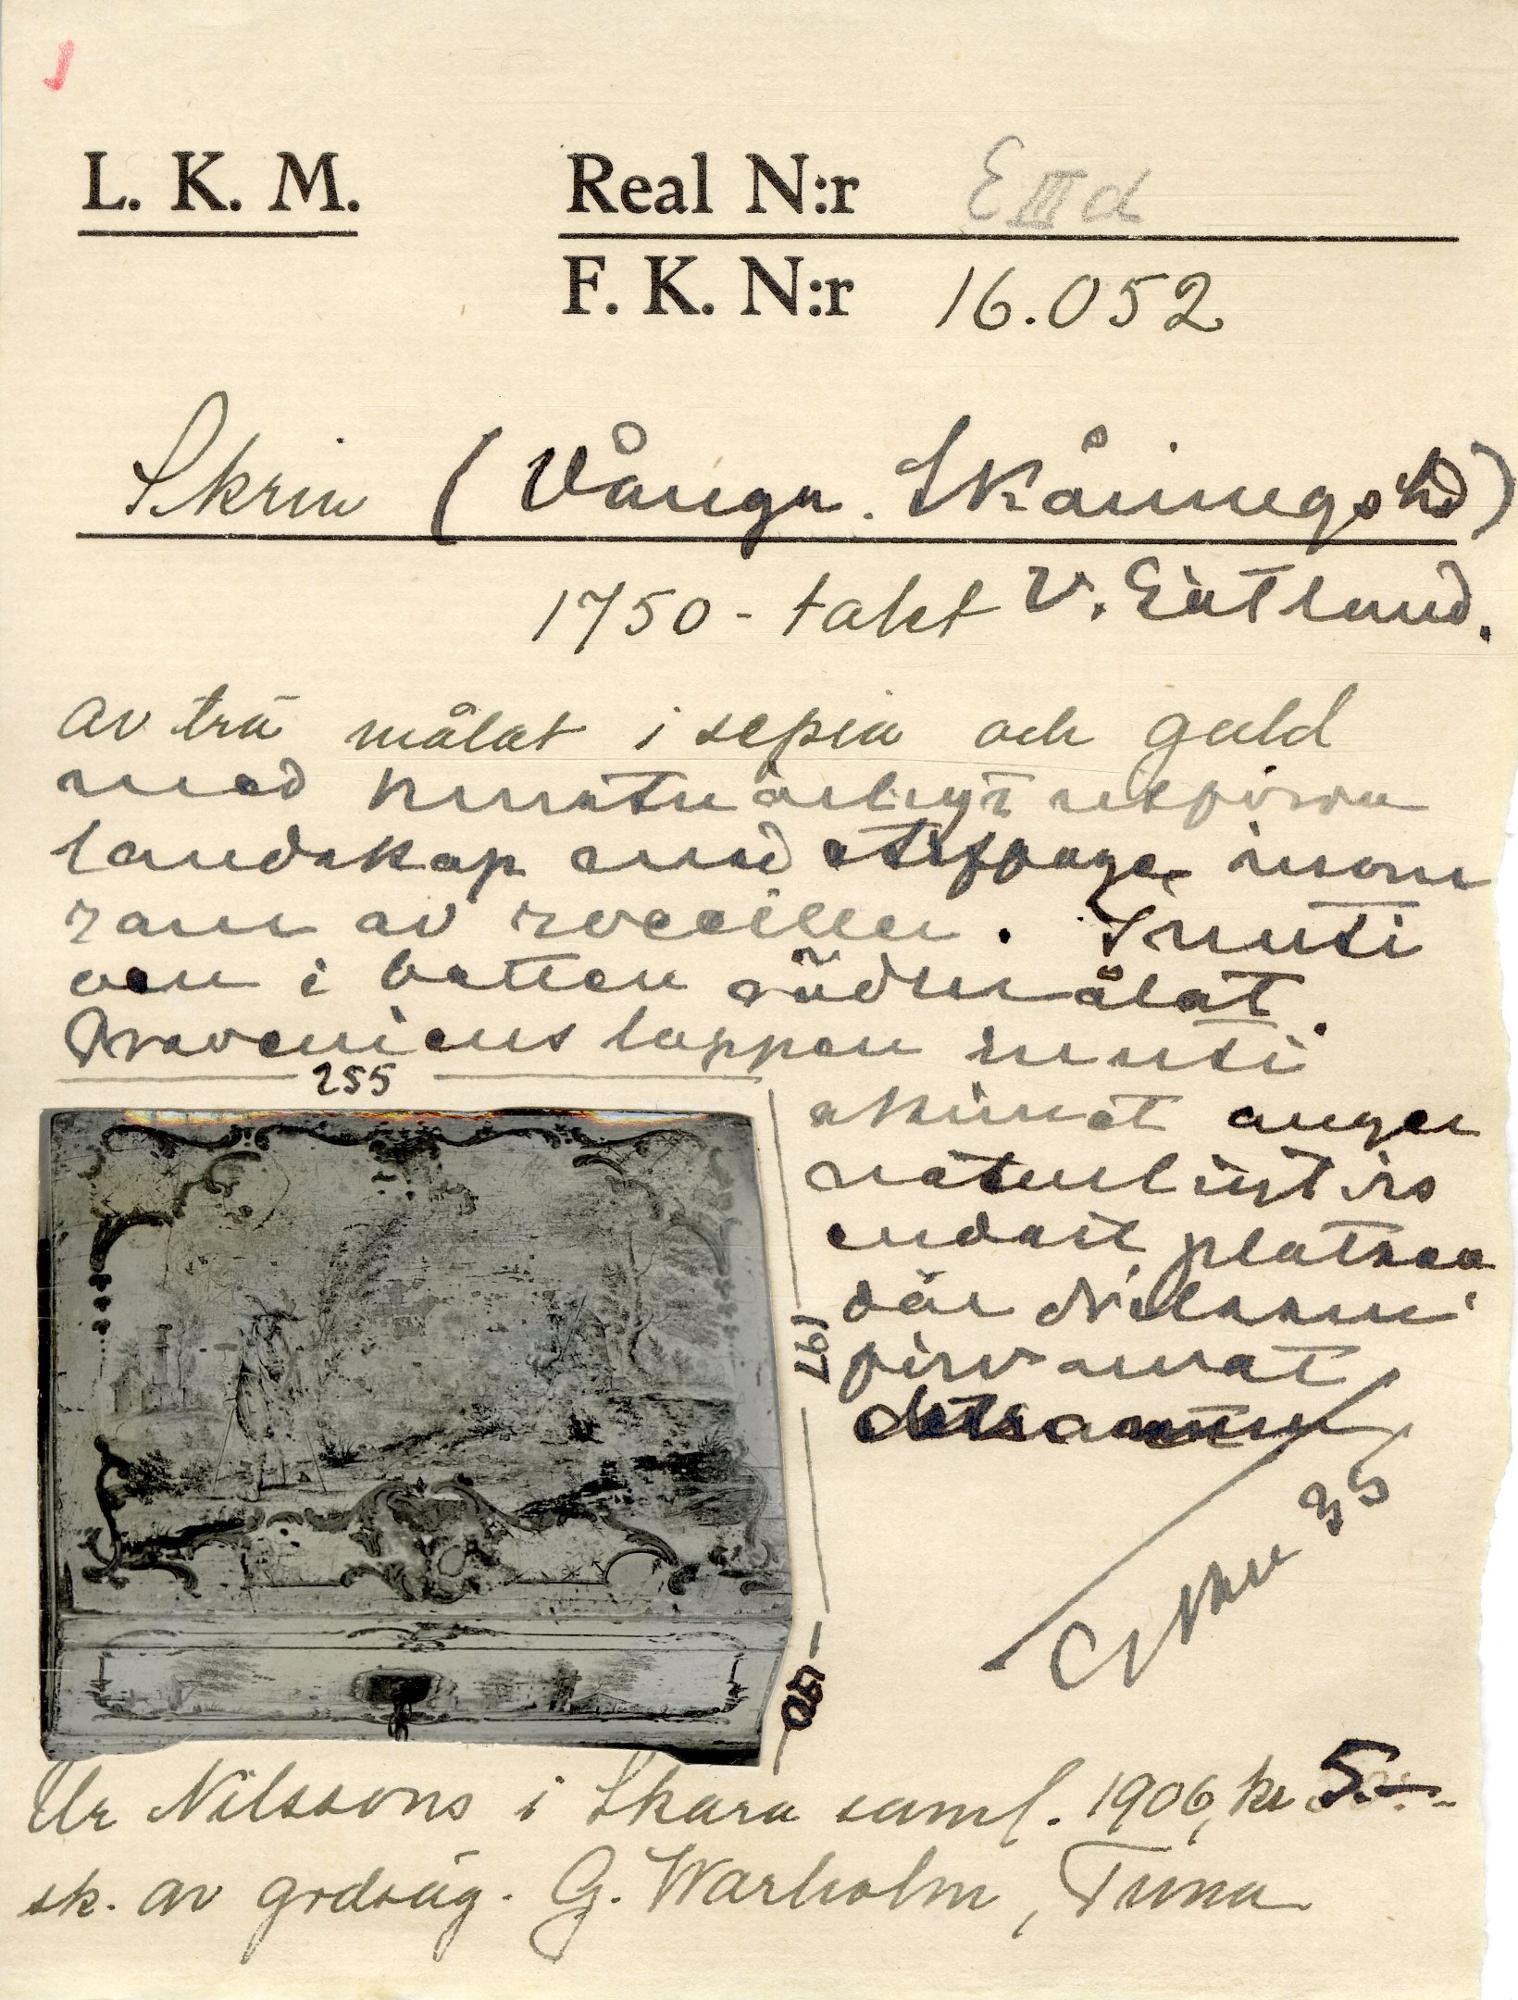 L. K. M.
Real N:r E III d
F. K. N:r 16.052
Skrin (Vånga. Skånings hd)
1750-talet V. Götland.
av trä målat i sepia och guld
med konstnärligt utförda
landskap med staffage, inom
ram av rocailler. Inuti
även i botten rödmålat.
Provenienslappen inuti
255
skrinet anger
naturligtvis
endast platsen
där Nilsson
förvärvat
detsamma
197
120
35
Ur Nilssons i Skara saml. 1906, kr 5.-
sk. av grdsäg. G. Warholm, Tuna